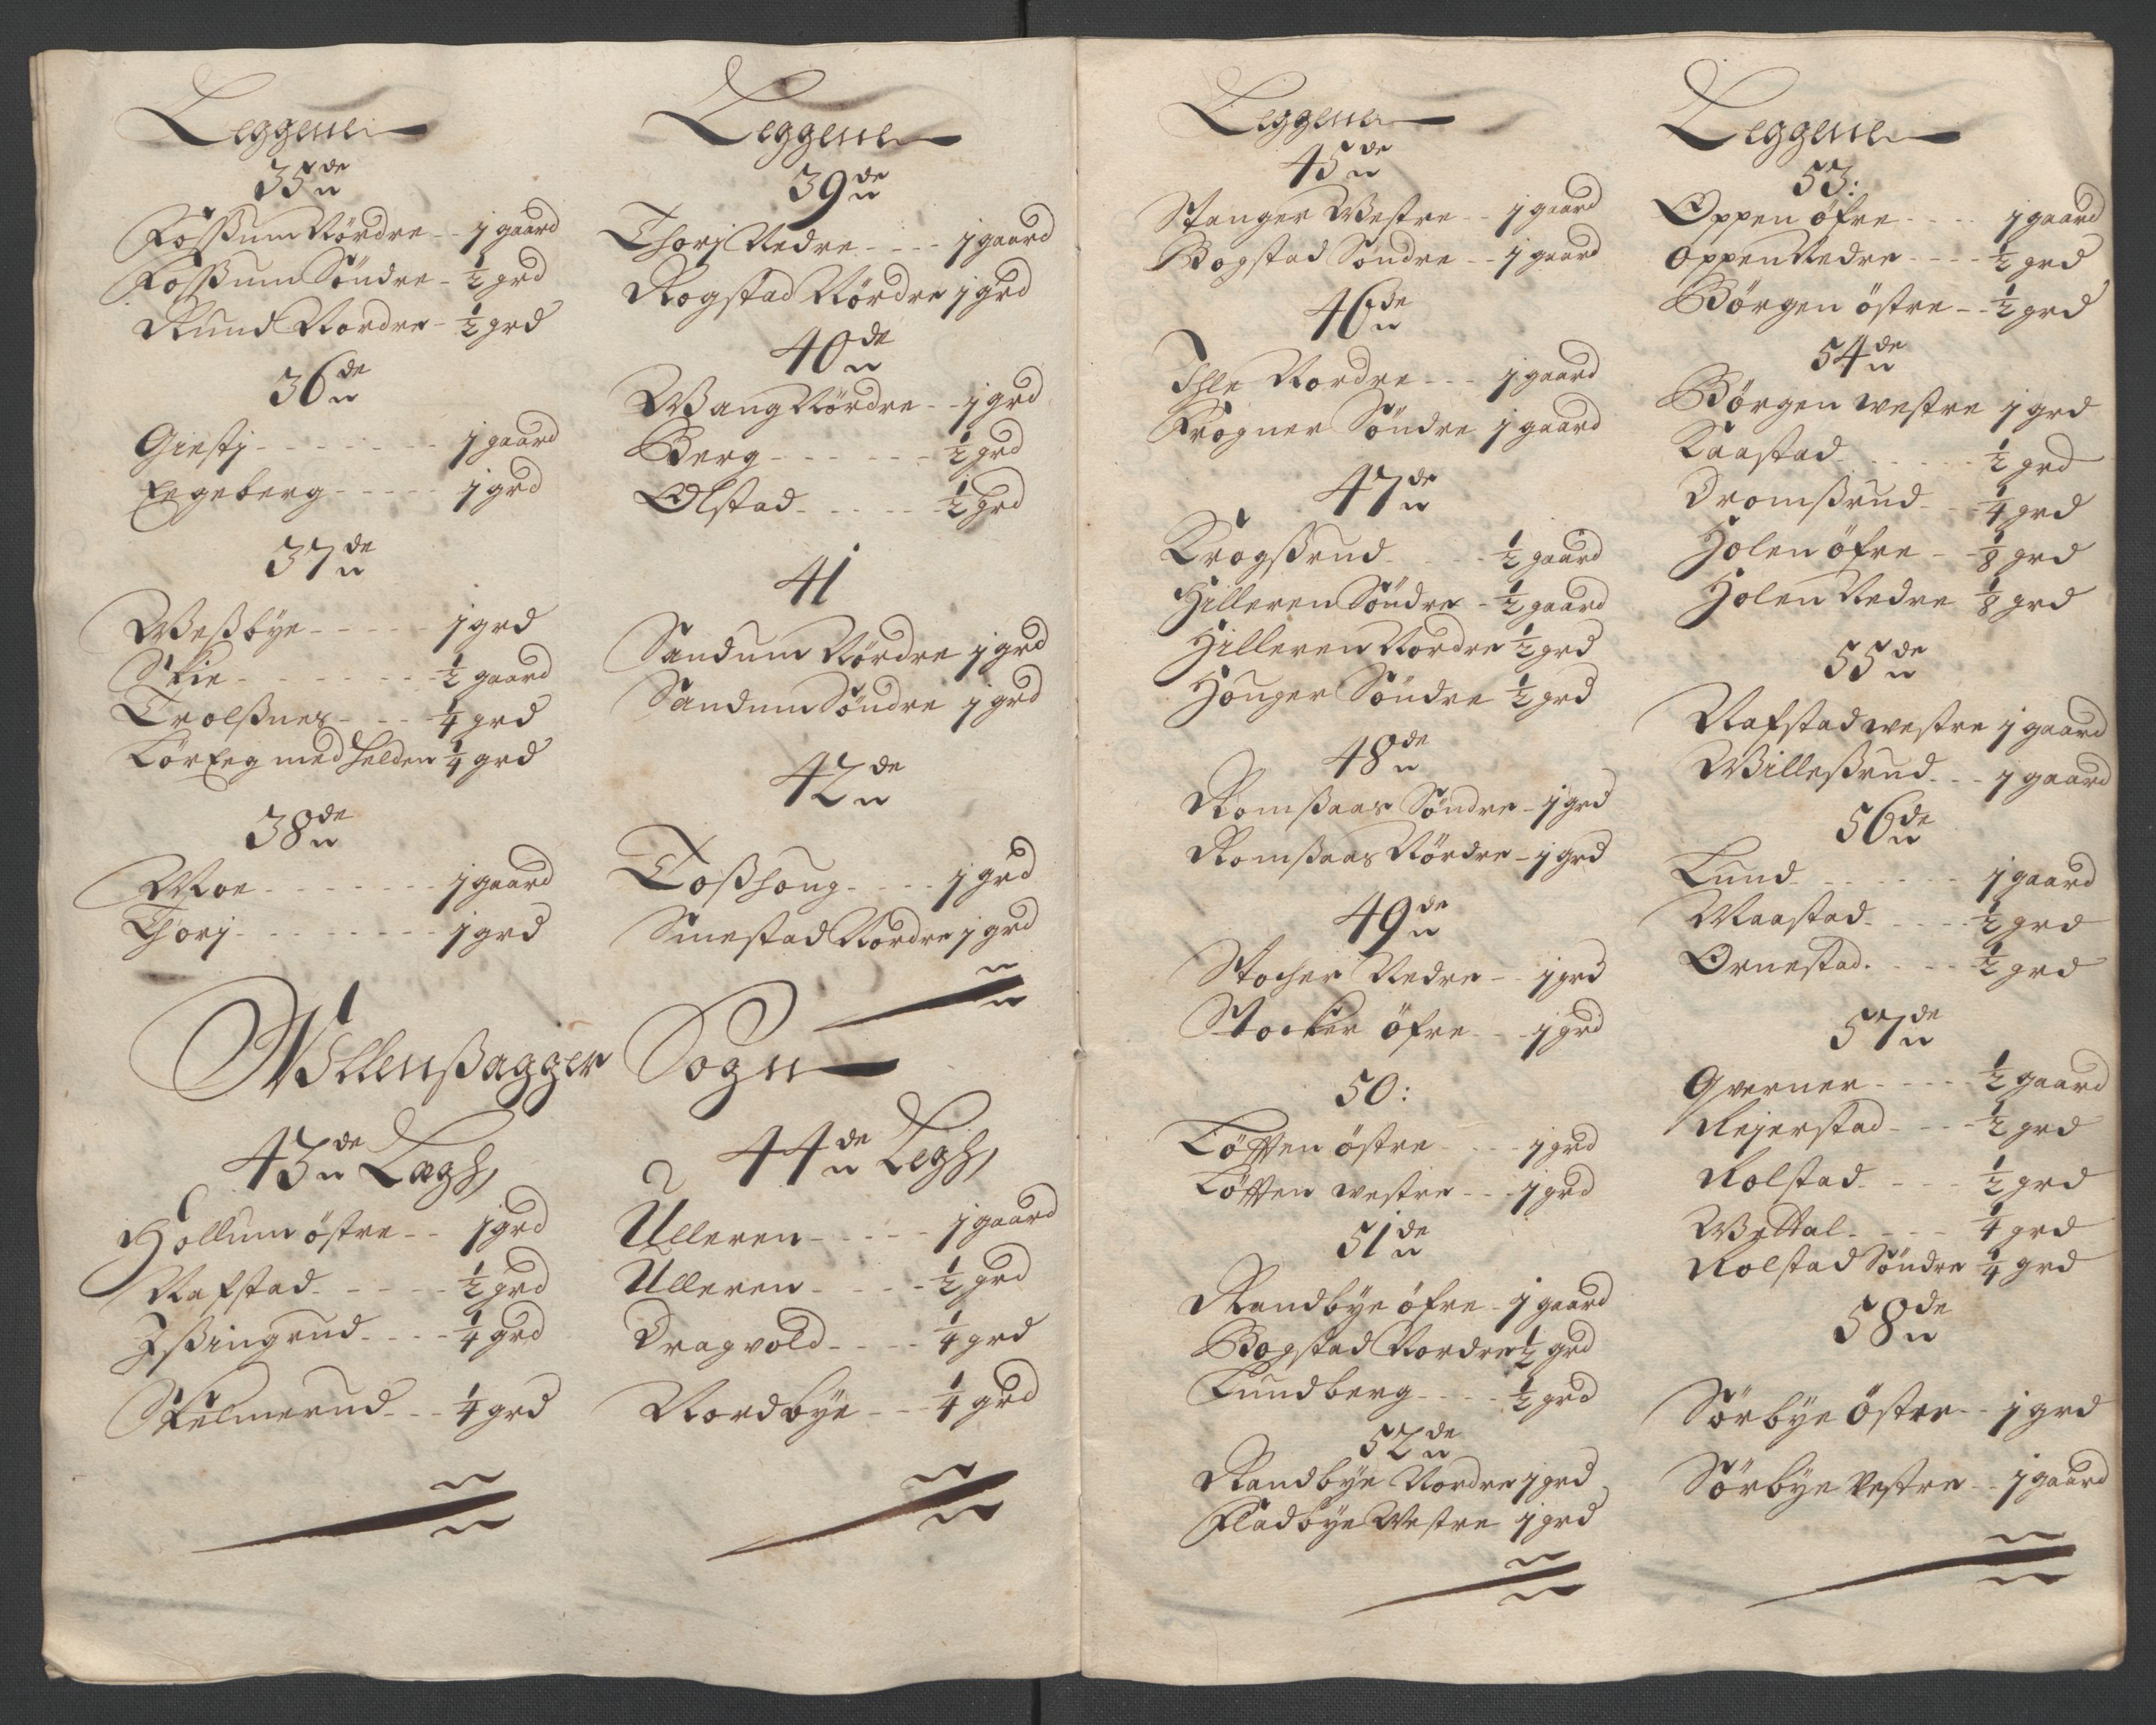 Leggene
35de
Fossum Nördre - - j gaard
Fossum Söndre - ½ grd
Rund Nordre - ½ grd
36de
Giestj - - - - - - - j gaard
Eegeberg - - - - - j grd
37de
Wessbye - - - - - j grd
Skie - - - - - - - ½ gaard
Trolssnes - - - - ¼ grd
Lör Eeg med Helden ¼ grd
38de
Moe - - - - - - - j gaard
Thorj - - - - - - - - j grd
Leggene
39de
Thorj Nedre - - - - j gaard
Rogstad Nördre j grd
40de
Wang Nördre - - j grd
Berg - - - - - - ½ grd
Olstad - - - - - ½ grd
41
Sandum Nördre j grd
Sandum Söndre j grd
42de
Tosshoug - - - - j grd
Smestad Nordre j grd
Wllenssagger Sogn
43de Lægh
Hollum östre - - j grd
Nafstad - - - - - ½ grd
Issingrud - - - - ¼ grd
Skelmerud - - - ¼ grd
44de Legh
Ulleren - - - - - j gaard
Ulleren - - - - - ½ grd
Dragvold - - - - ¼ grd
Nordbye - - - ¼ grd
Leggene
45de
Stanger Westre - - j gaard
Bogstad Söndre - - j gaard
46de
Ihle Nordre - - - j gaard
Frogner Söndre j gaard
47de
Krogssrud - - - - ½ gaard
Hilleren Söndre - ½ gaard
Hilleren Nordre ½ grd
Houger Söndre ½ grd
48de
Romssaas Söndre - j grd
Romssaas Nördre - j grd
49de
Stocker Nedre - - j grd
Stocker öfre - - - j grd
50:
Töffen östre - - - j grd
Töffen westre - - - j grd
51de
Randbye öfre - j gaard
Bogstad Nordre ½ grd
Lundberg - - - - ½ grd
52de
Randbye Nordre j grd
Fladbye Westre j grd
Leggene
53:
Oppen öfre - - - - j gaard
Oppen Nedre - - - - ½ grd
Börgen östre - - ½ grd
54de
Börgen westre j grd
Kaastad - - - - - ½ grd
Dromssrud - - - ¼ grd
Holen öfre - - ⅛ grd
Holen Nedre ⅛ grd
55de
Nafstad westre j gaard
Willessrud - - - j gaard
56de
Lund - - - - - - j gaard
Maastad - - - - - ½ grd
Ornestad - - - - ½ grd
57de
Gverner - - - - ½ gaard
Rejerstad - - - - ½ grd
Rolstad - - - - ½ grd
Wettal - - - - ¼ grd
Rolstad Söndre ¼ grd
58de
Sörbye östre - - j grd
Sörbye Vestre - - j gaard